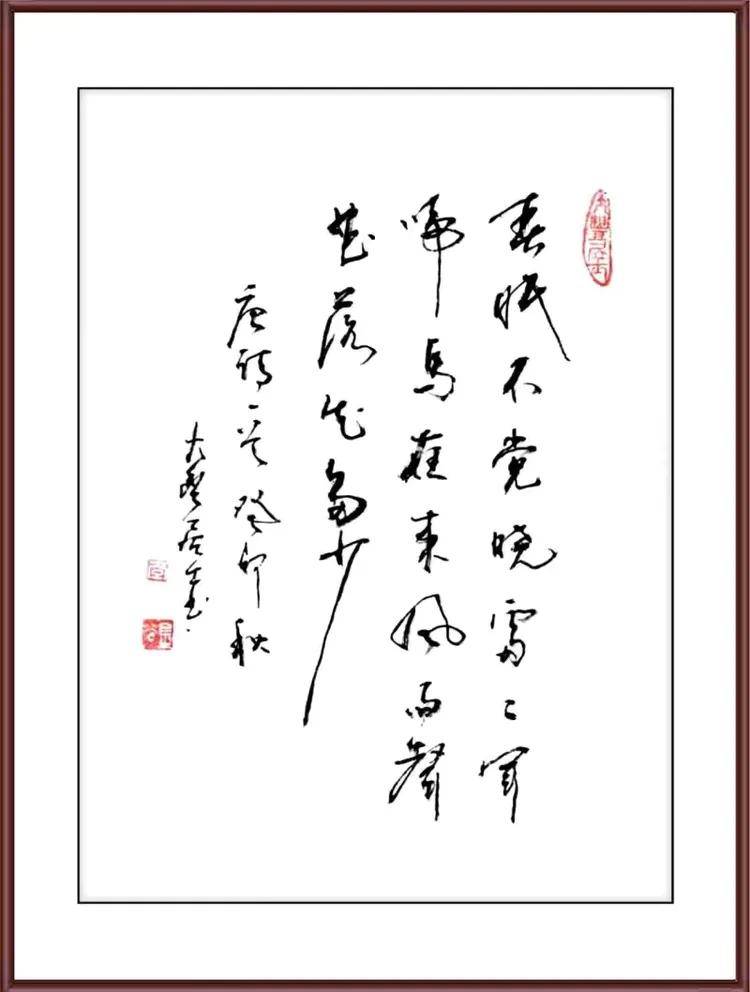 春眠不觉晓處〻聞
啼鸟夜来风雨聲
花落知多少
唐诗一首 癸卯秋
大豐居士书